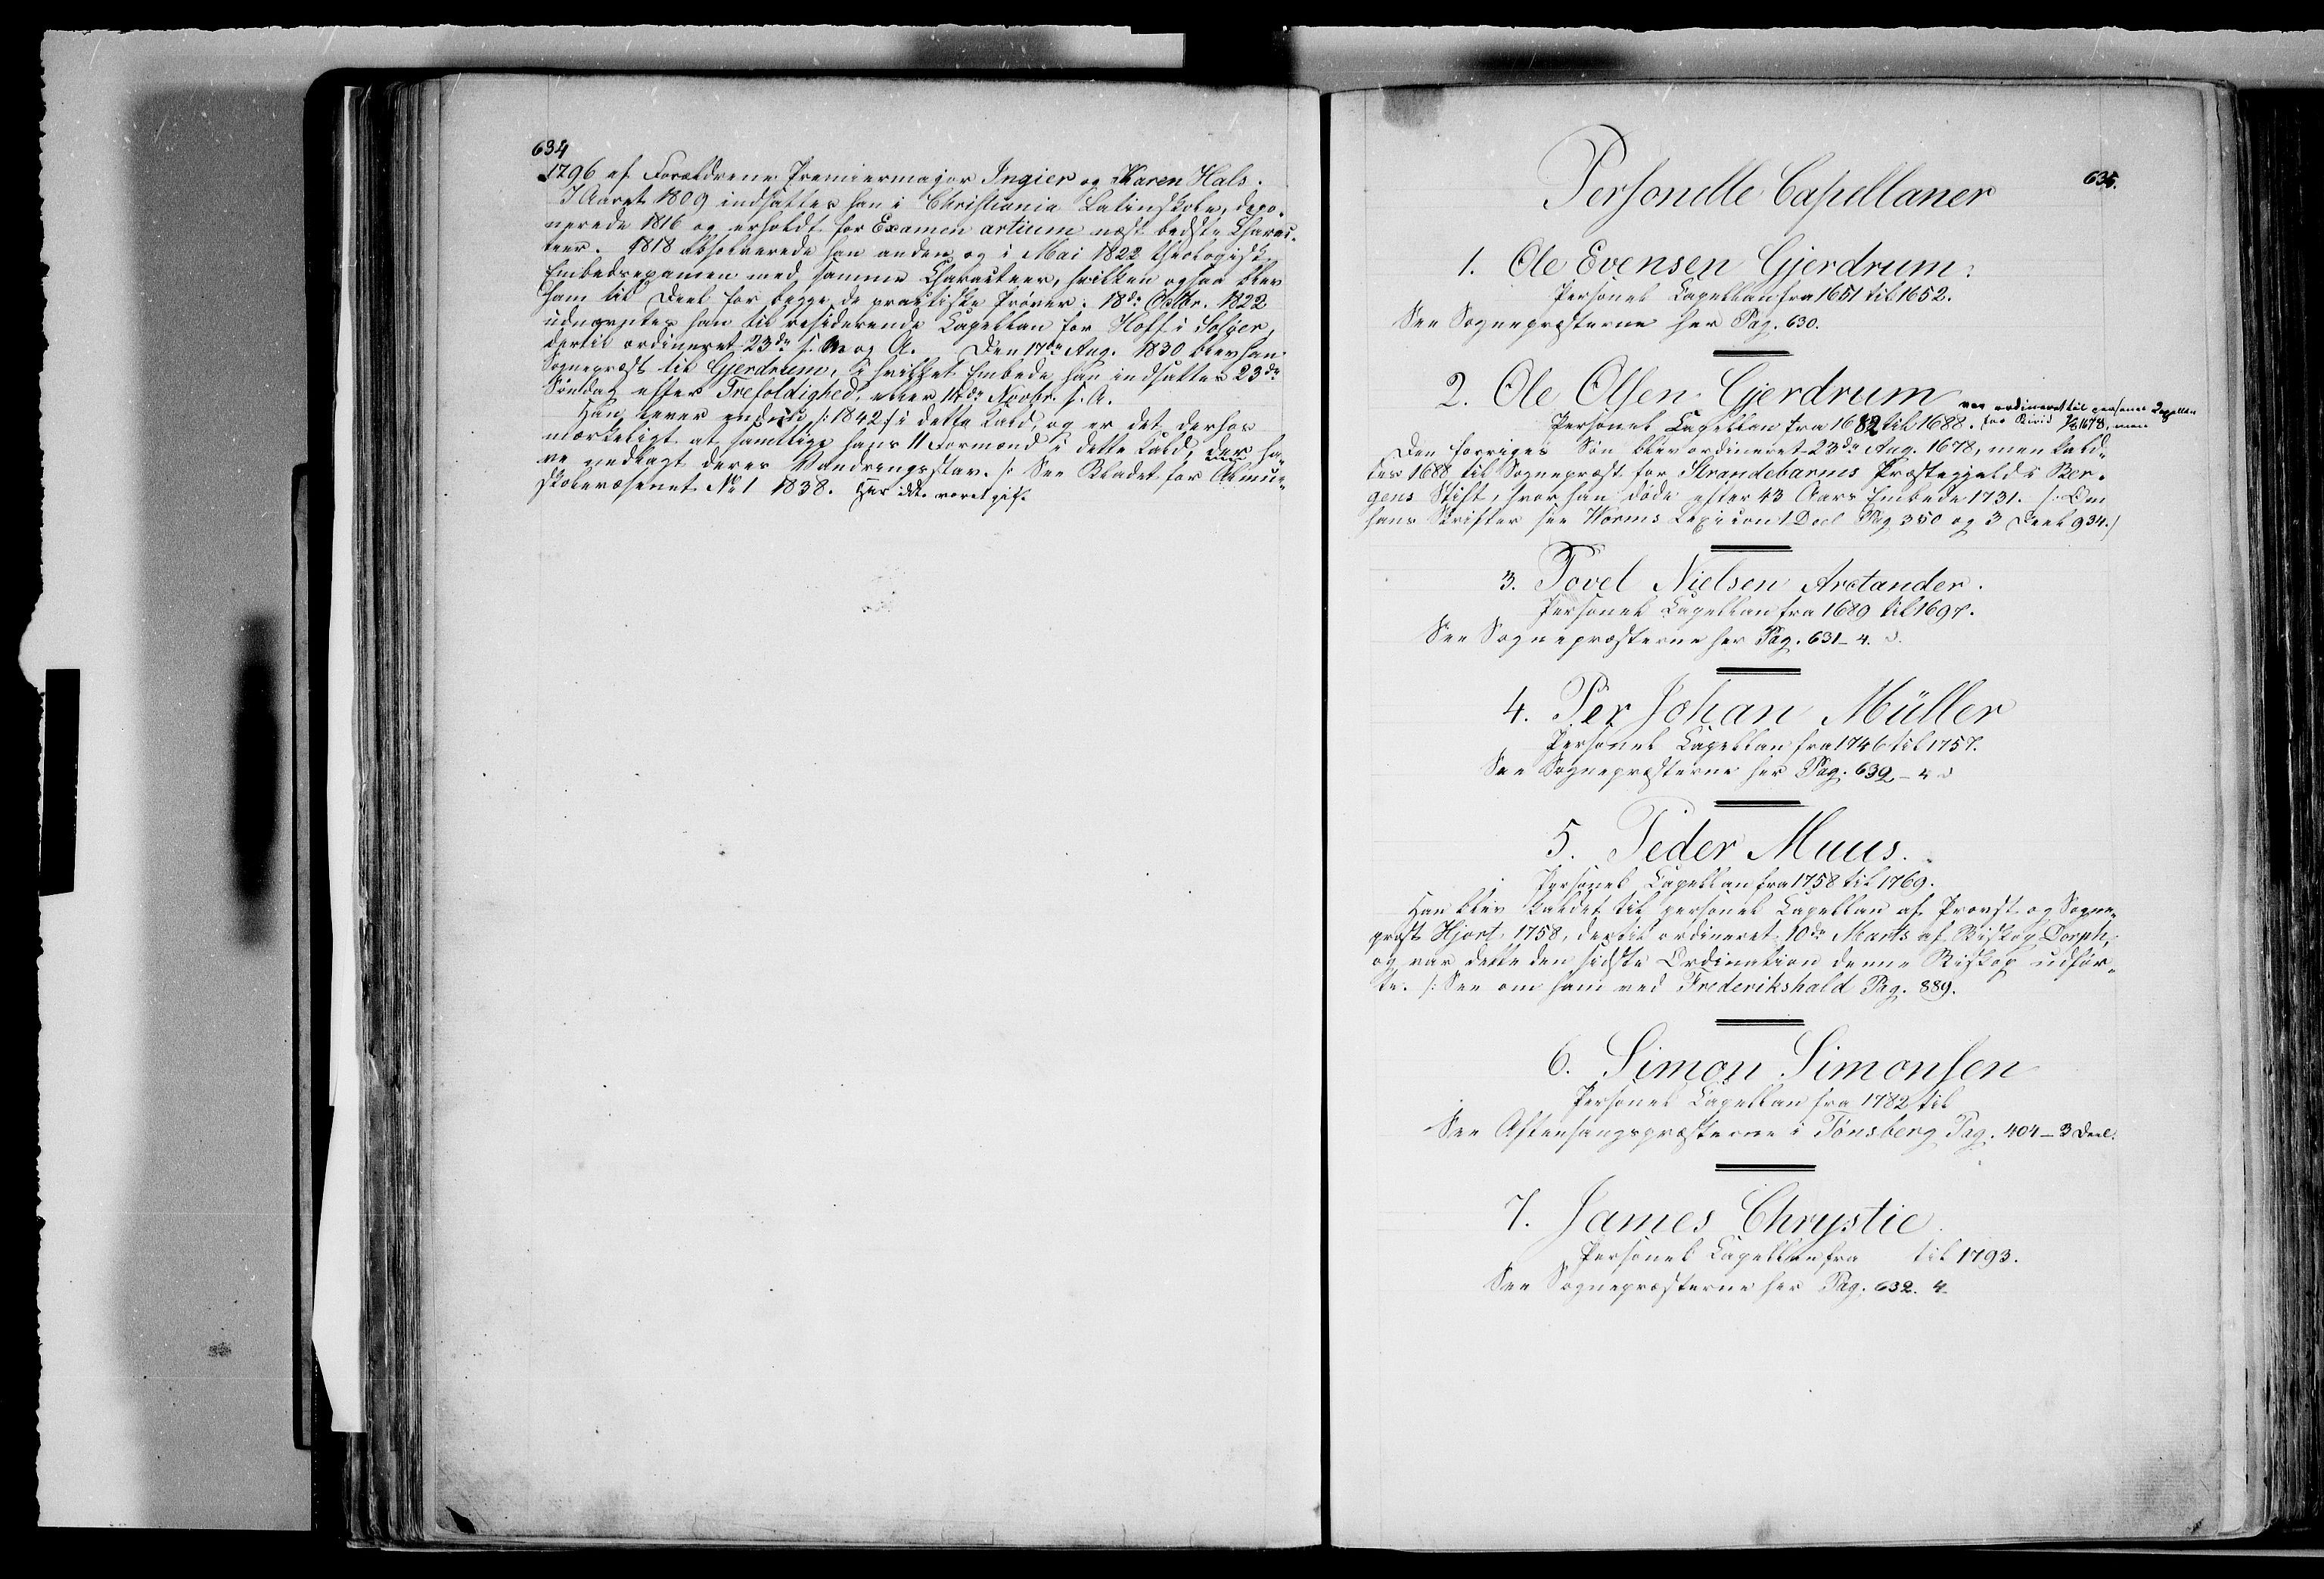 634
1796 af Forældrene Premiermajor Ingier og Karen Hals.
I Aaret 1809 indsattes han i Christiania Latinskole, depo-
nerede 1816 og erholdt for Examen artium næst bedste Charac-
teer. 1818 absolverede han anden og i Mai 1822 theologisk
Embedsexamen med samme Characteer, hvilken ogsaa blev
ham til Deel for begge de practiske Prøver. 18de Octbr. 1822
udnævntes han til residerende Capellan for Hoff i Soløer,
dertil ordineret 23de s. M. og A. Den 17de Aug. 1830 blev han
Sognepræst til Gjerdrum, i hvilket Embede han indsattes 23de
Søndag efter Trefoldighed, eller 14de Novbr. s. A.
Han lever endnu /: 1842 :/ i dette Kald, og er det derhos
mærkeligt at samtlige hans 11 Formænd i dette Kald, der ha-
ve nedlagt deres Vandringsstav. /: See Bladet for Almue-
skolevæsenet No 1 1838. Har ikke været gift
635.
Personelle Capellaner
1. Ole Evensen Gjerdrum.
Personel Capellan fra 1651 til 1652.
See Sognepræsterne her Pag. 630.
2. Ole Olsen Gjerdrum
var ordineret til personel Capellan
Personel Capellan fra 1682 til 1688. for 1678, men
Den forriges Søn blev ordineret 23de Aug. 1678, men kald-
tes 1688 til Sognepræst for Strandebarms Præstegjeld i Ber-
gens Stift, hvor han døde efter 43 Aars Embede 1731. /: Om
hans Skrifter see Worms Lexicon 1 Deel Pag 350 og 3 Deel 934. :/
3. Povel Nielsen Arctander.
Personel Capellan fra 1689 til 1697.
See Sognepræsterne her Pag. 631 – 4.
4. Per Johan Müller
Personel Capellan fra 1746 til 1757.
See Sognepræsterne her Pag. 632 – 4
5. Peder Muus.
Personel Capellan fra 1758 til 1769.
Han blev kaldet til personel Capellan af Provst og Sogne-
præst Hjort 1758, dertil ordineret 10de Marts af Biskop Dorph,
og var dette den sidste Ordination denne Biskop udfør-
te. /: See om ham ved Frederikshald Pag. 889.
6. Simon Simonsen
Personel Capellan fra 1782 til
See Aftensangspræsterne i Tønsberg Pag. 404 – 3 Deel.
7. James Chrystie.
Personel Capellan fra til 1793.
See Sognepræsterne her Pag. 632. 4